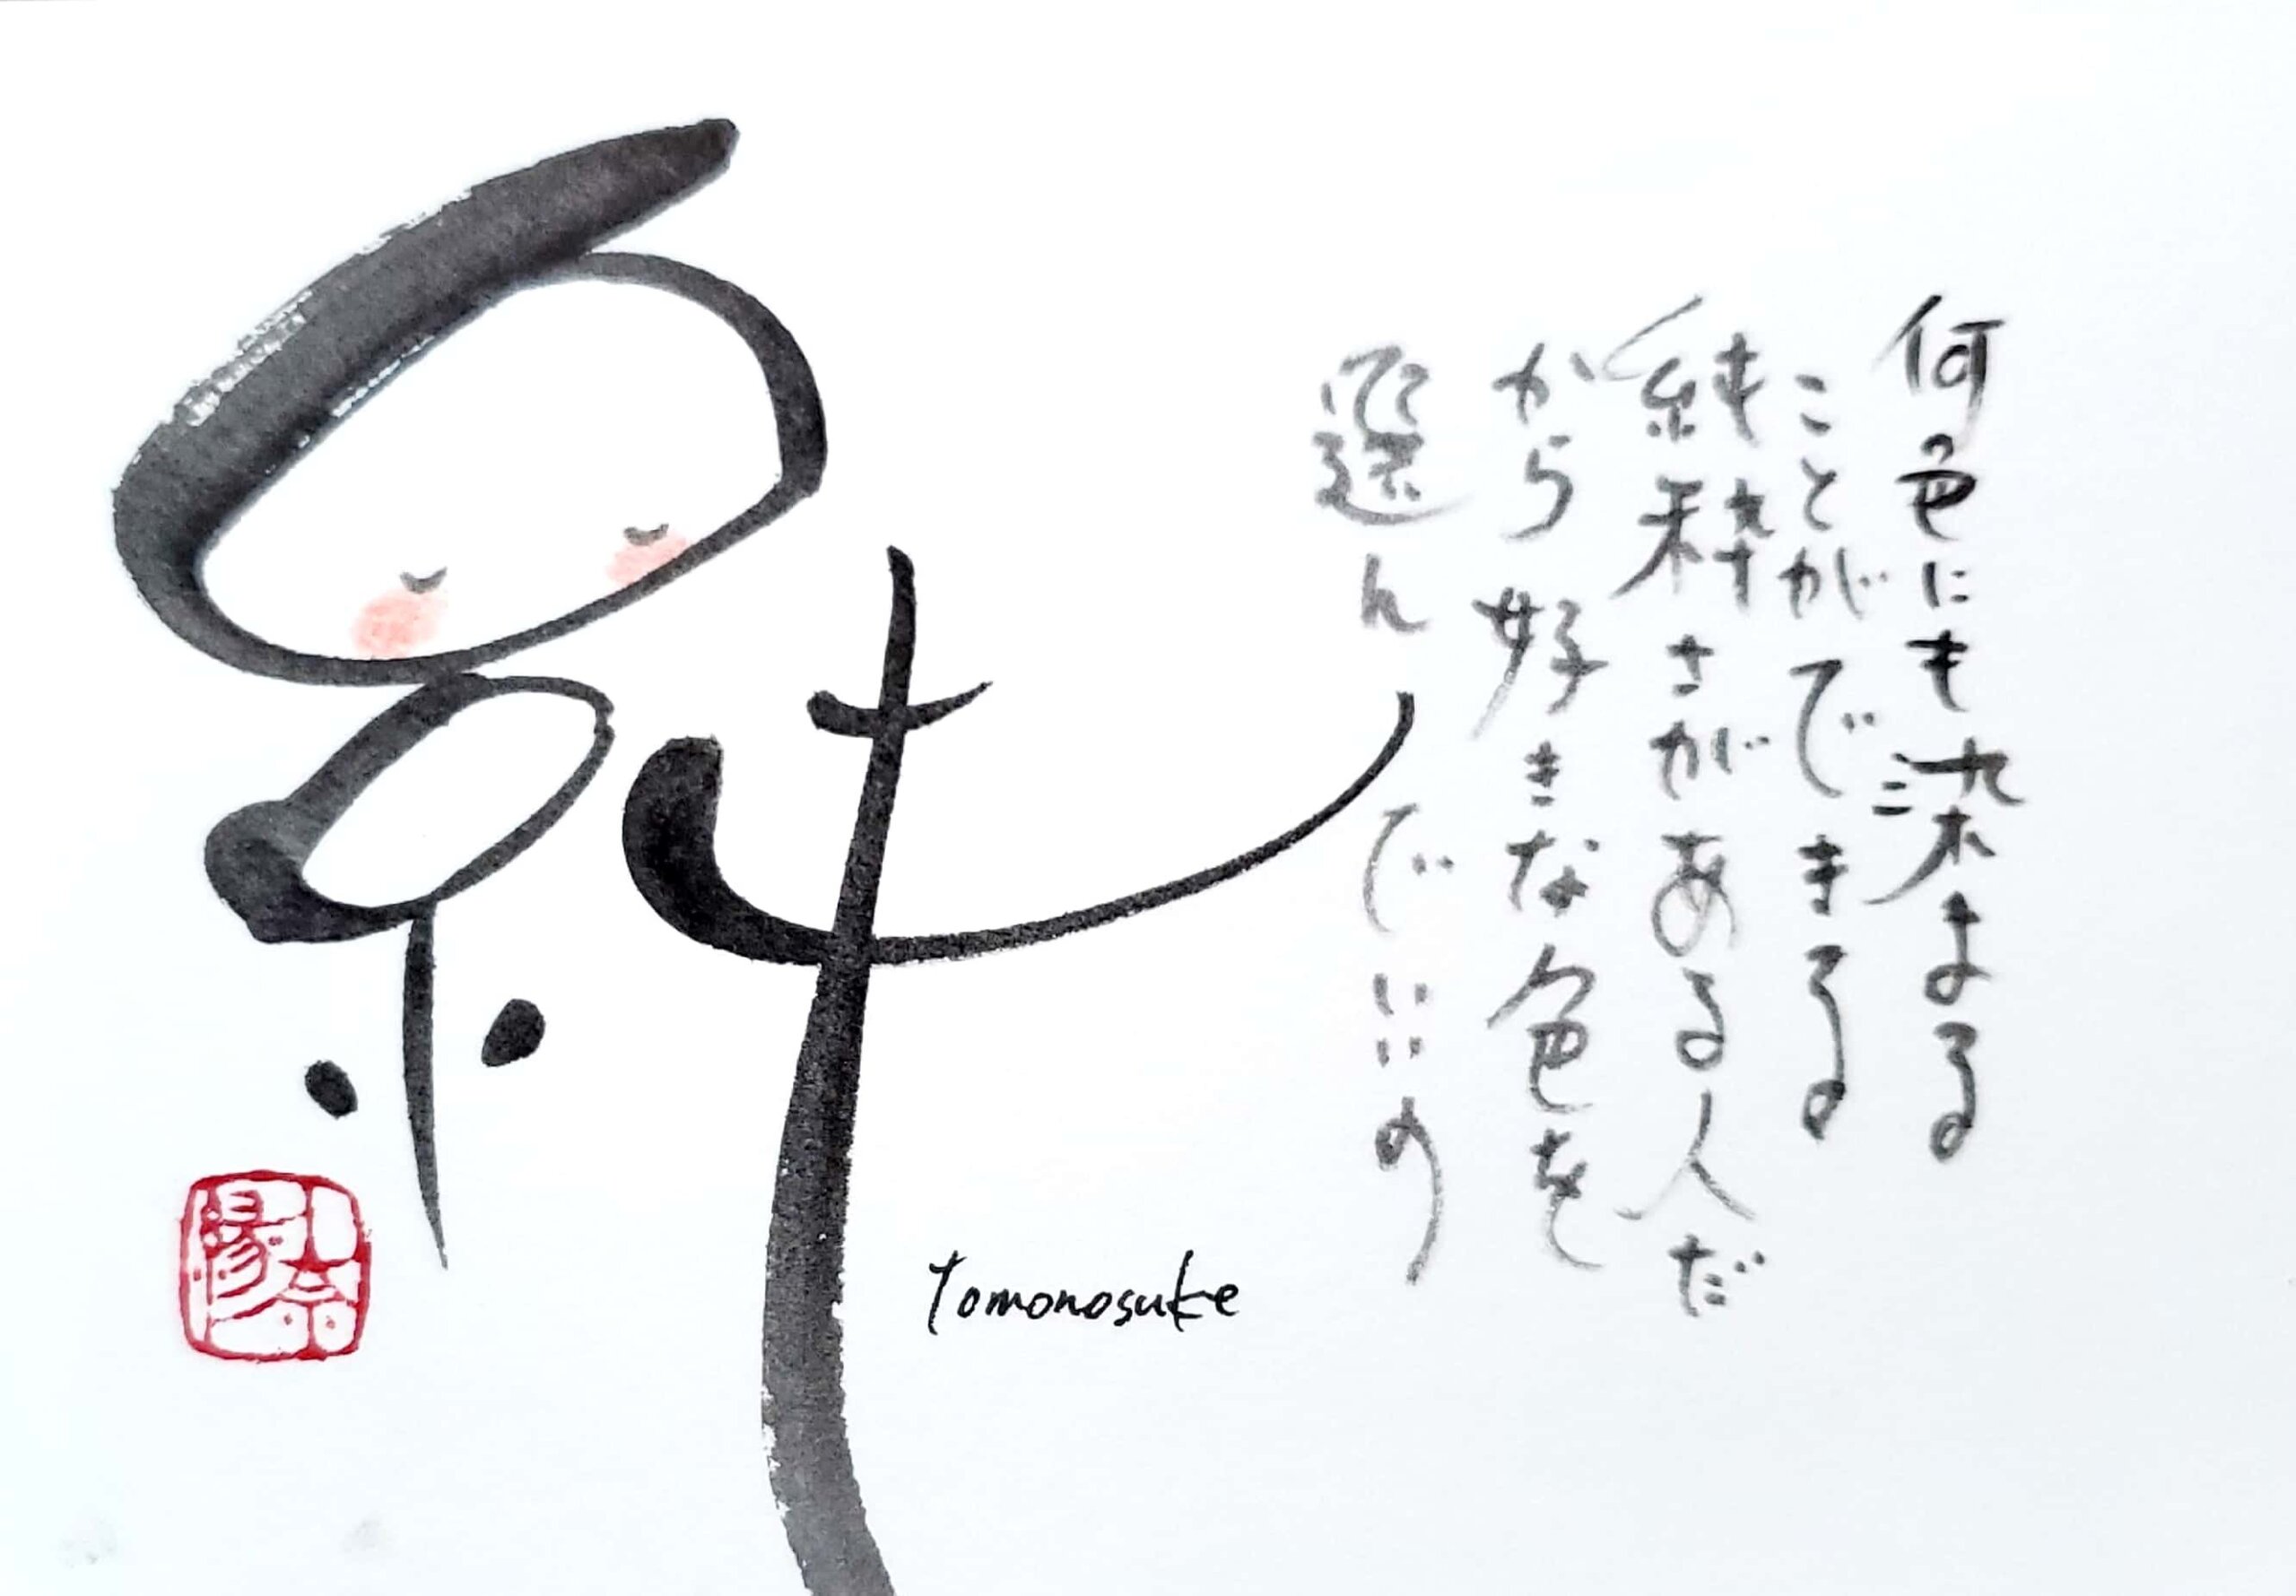 何色にも染まる
ことができる
純粋さがある人だ
から好きな色を
選んでいいの
純
Tomonosuke